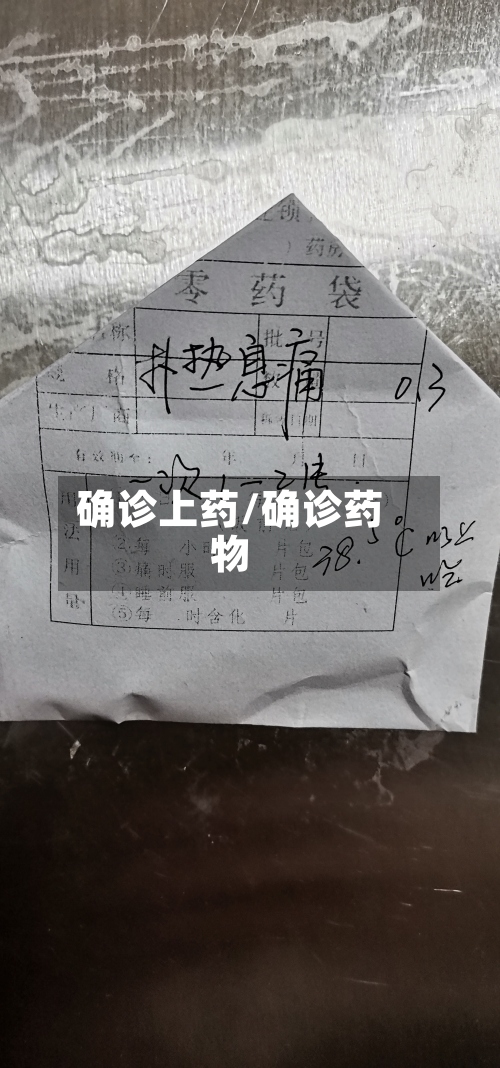 药房
零药袋
称 批号
扑热息痛 0.3
格
生产厂商
有效期至: 年 月 日
一次1—2片
确诊上药/确诊药
物
用法用量
②每 小时 片包
38.5℃以上
③痛时服 片包
④睡前服 片包
⑤每 时含化 片